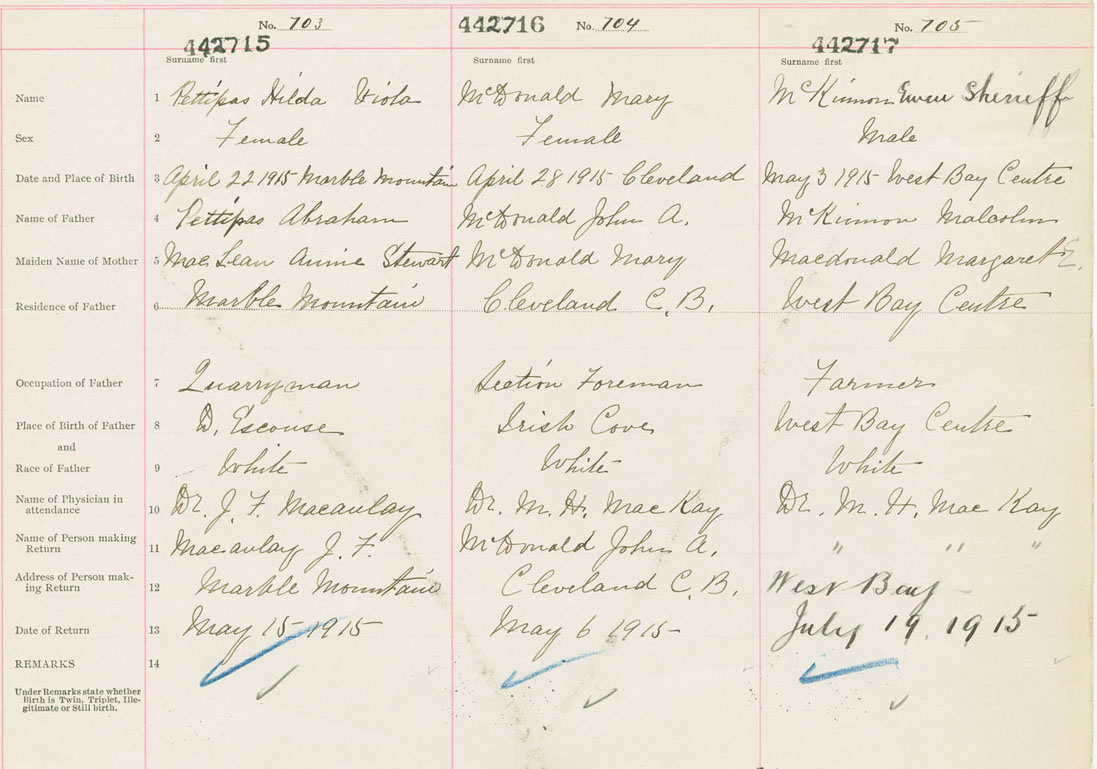 No. 703 442716 No. 704 No. 705
442715 442717
Surname first Surname first Surname first
Name 1 Pettipas Hilda Viola McDonald Mary McKinnon Ewen Sherriff
Sex 2 Female Female Male
Date and Place of Birth 3 April 22 1915 Marble Mountain April 28 1915 Cleveland May 3 1915 West Bay Centre
Name of Father 4 Pettipas Abraham McDonald John A. McKinnon Malcolm
Maiden Name of Mother 5 MacLean Annie Stewart McDonald Mary Macdonald Margaret E.
Residence of Father 6 Marble Mountain Cleveland C.B. West Bay Centre
Occupation of Father 7 Quarryman Section Foreman Farmer
Place of Birth of Father 8 D. Escouse Irish Cove West Bay Centre
and
Race of Father 9 White White White
Name of Physician in
attendance 10 Dr. J. F. Macaulay Dr. M. H. MacKay Dr. M. H. MacKay
Name of Person making
Return 11 Macaulay J. F. McDonald John A. " " "
Address of Person mak-
ing Return 12 Marble Mountain Cleveland C.B. West Bay
Date of Return 13 May 15 1915 May 6 1915 July 19, 1915
REMARKS 14
Under Remarks state whether
Birth is Twin, Triplet, Ille-
gitimate or Still birth.